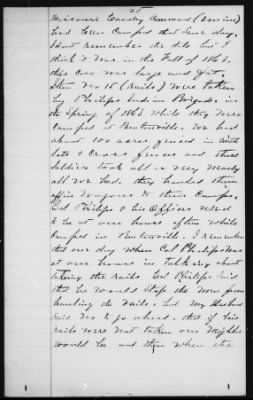 25
Missouri Cavalry Command (Union)
had been Camped that same day.
I dont remember the date but I
think it was in the Fall of 1862.
this cow was large and fat.
Item No 15 (Rails) Were taken
by Phillips Indian Brigade in
the Spring of 1863 While they Were
Camped at Bentonville. We had
about 100 acres fenced in with
lots & Cross fences and these
Soldiers took all or very nearly
all we had. they hauled them
off in Wagons to their Camps.
Col Phillips & his Officers used
to be at our house often while
Camped in Bentonville. I remember
that one day when Col Phillips was
at our house in talking about
taking the rails Col Phillips Said
that he would stop the men from
hauling the rails. but my Husband
Said no to go ahead. that if his
rails were not taken our neighbors
would be and then when the